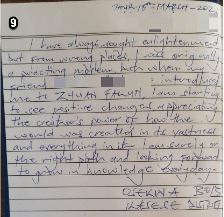 9
18th MARCH - 202
I have always sought enlightenment
but from wrong places, I was originally
a practising muslim but when a
friend introduced
me to ZHUAN FALUN I am starting
to see positive changes appreciating
the creator's power of how the
world was created in its vastness
and everything in it. I am surely on
the right path and looking forward
to grow in knowledge everyday.
KASESE DISTRICT